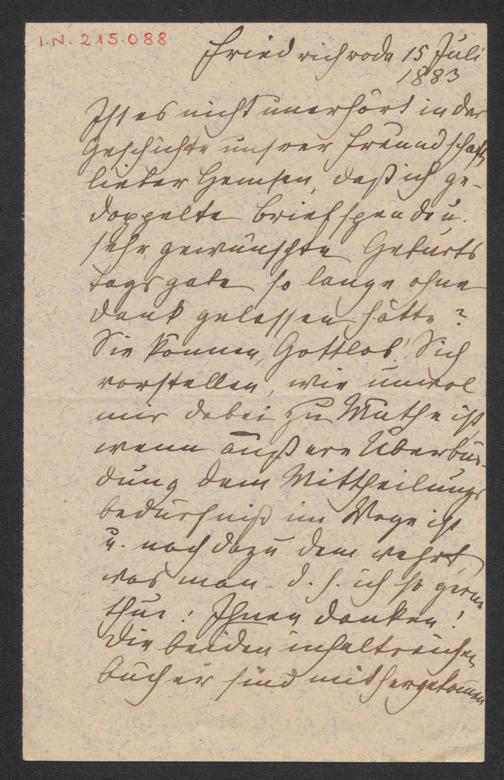 I.N. 215.088
Friedrichroda 15 Juli
1883
Ist es nicht unerhört in der
Geschichte unsrer Freundschaft
lieber Hemsen, daß ich ge-
doppelte Briefspende u.
sehr gewünschte Geburts
tagsgabe so lange ohne
Dank gelassen hätte?
Sie können, Gottlob, Sich
vorstellen, wie unwol
mir dabei zu Muthe ist
wenn äußere Überbür-
dung dem Mittheilungs
bedürfniß im Wege ist
u. noch dazu dem wehrt,
was man - d. h. ich so gern
thue: Ihnen danken!
Die beiden inhaltreichen
Bücher sind mithergekommen